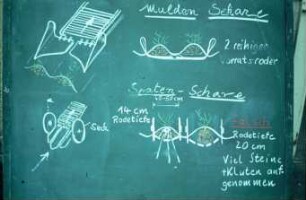 Mulden Schare
2 reihiger
Vorratsroder
Spaten - Schare
14 cm
Rodetiefe
Sech
Rodetiefe
20 cm
Viel Steine
+ Kluten auf
genommen